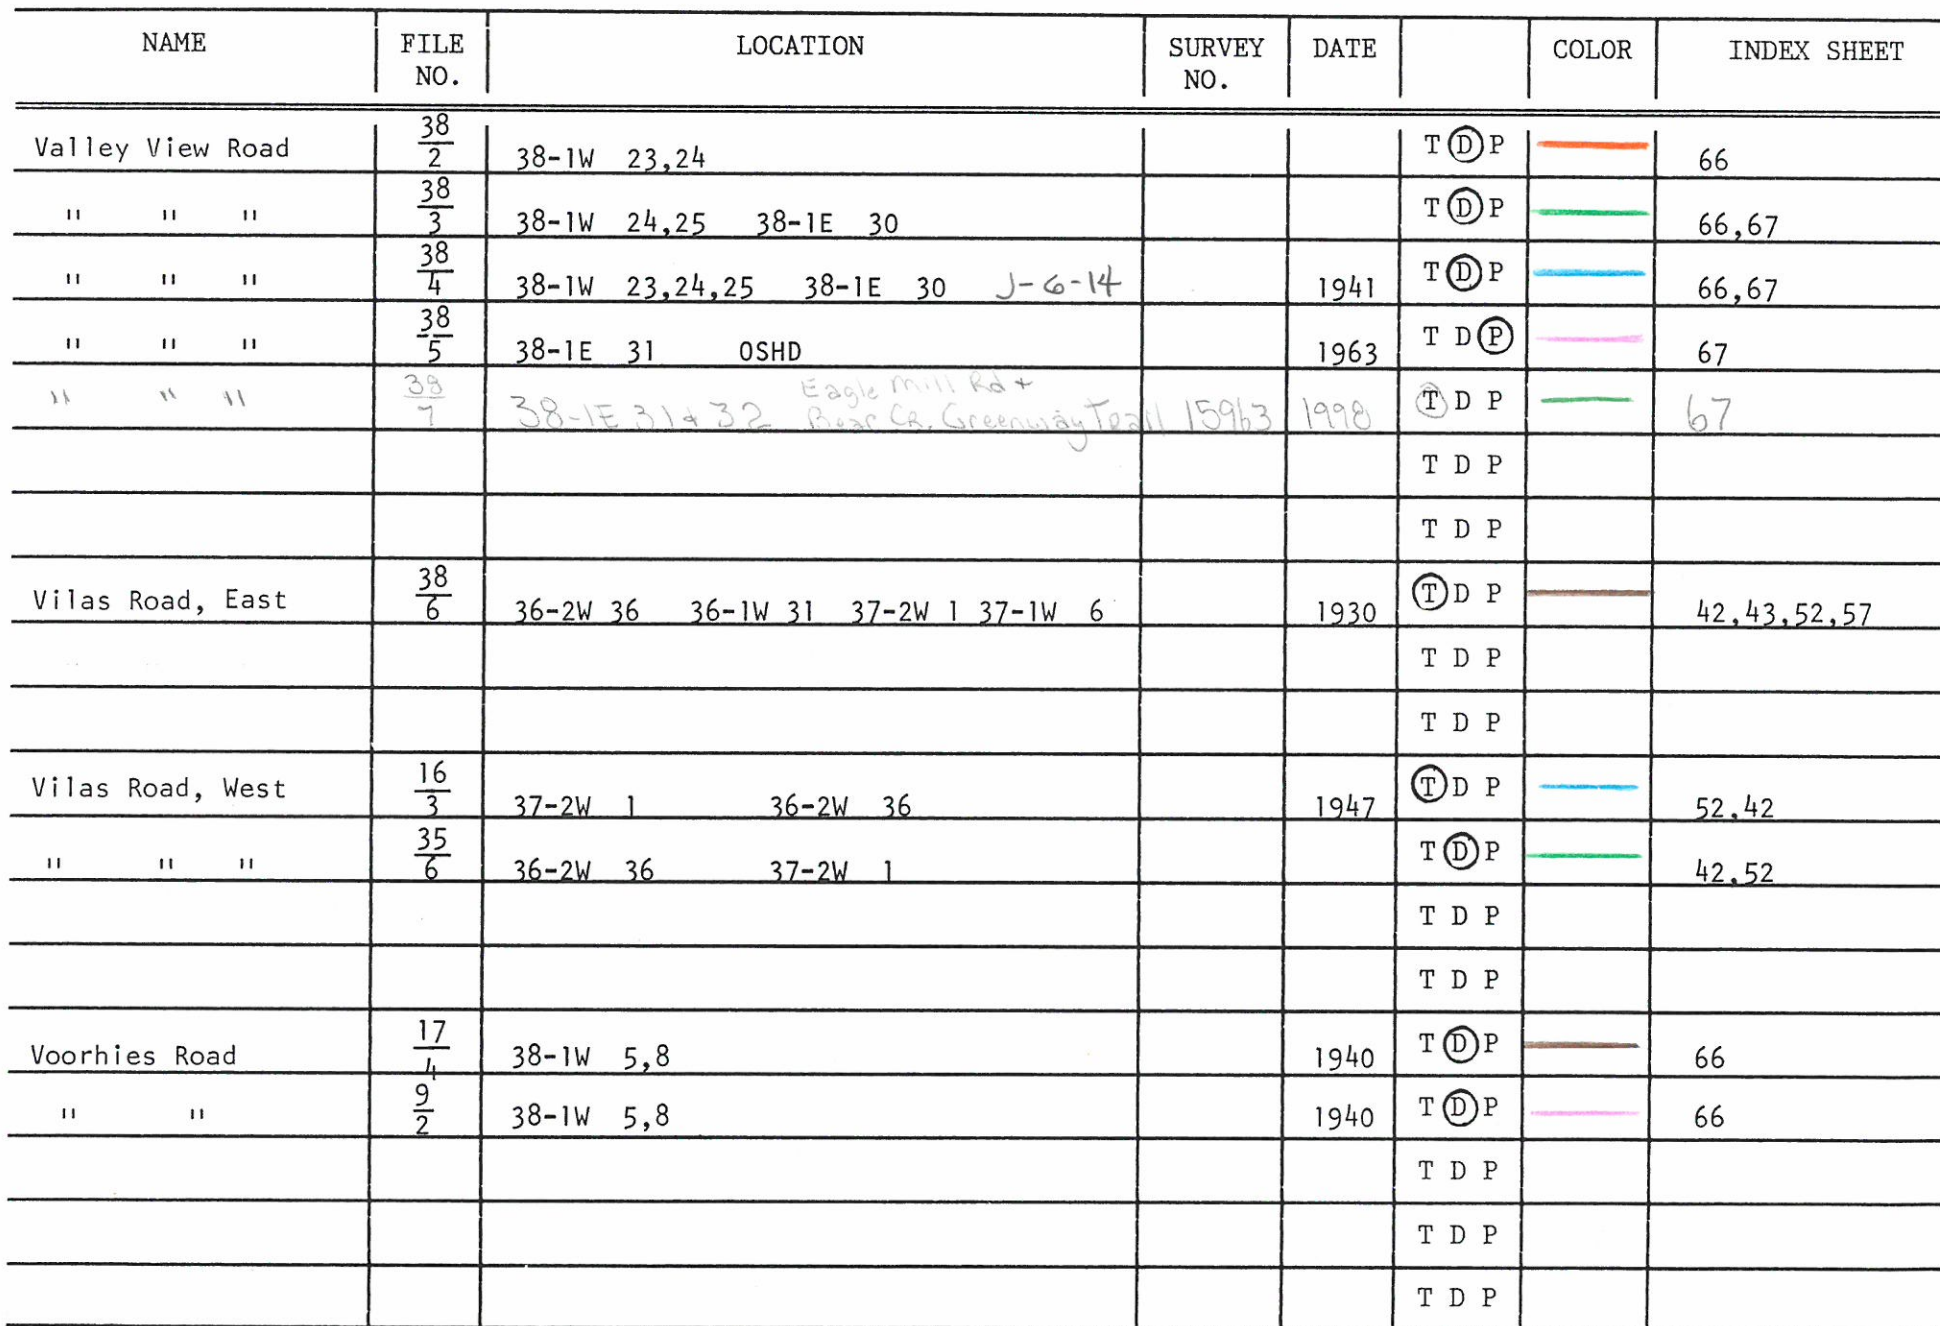 NAME FILE NO. LOCATION SURVEY NO. DATE COLOR INDEX SHEET
Valley View Road 38/2 38-1W 23,24 T D P 66
" " " 38/3 38-1W 24,25 38-1E 30 T D P 66,67
" " " 38/4 38-1W 23,24,25 38-1E 30 J-6-14 1941 T D P 66,67
" " " 38/5 38-1E 31 OSHD 1963 T D P 67
" " " 38/7 38-1E 31 & 32 Eagle Mill Rd + Bear CR. Greenway Trail 15963 1998 T D P 67
T D P
T D P
Vilas Road, East 38/6 36-2W 36 36-1W 31 37-2W 1 37-1W 6 1930 T D P 42,43,52,57
T D P
T D P
Vilas Road, West 16/3 37-2W 1 36-2W 36 1947 T D P 52,42
" " " 35/6 36-2W 36 37-2W 1 T D P 42,52
T D P
T D P
Voorhies Road 17/4 38-1W 5,8 1940 T D P 66
" " 9/2 38-1W 5,8 1940 T D P 66
T D P
T D P
T D P